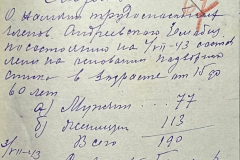 О. Наличии трудоспособных
членов. Андреевского
по состоянию на 1/VIII-43 состав
лено на основании подворных
списков в возрасте от 15 до
60 лет
а) Мужчин . . 77
б) Женщин 113
Всего 190
3/VIII-43